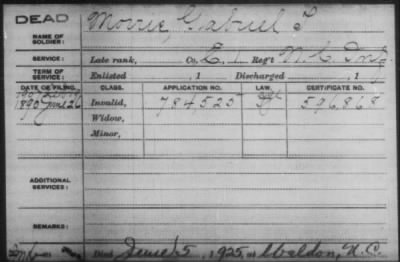 DEAD
NAME OF SOLDIER: Gabriel
SERVICE: Late rank, Co. E. 1 Reg't N. C. Inf
TERM OF SERVICE: Enlisted , 1 Discharged , 1
DATE OF FILING. CLASS. APPLICATION NO. LAW. CERTIFICATE NO.
1890 June 26 Invalid, 784525 596868
Widow,
Minor,
ADDITIONAL SERVICES:
REMARKS:
Died June 15, 1925, at Weldon, N. C.